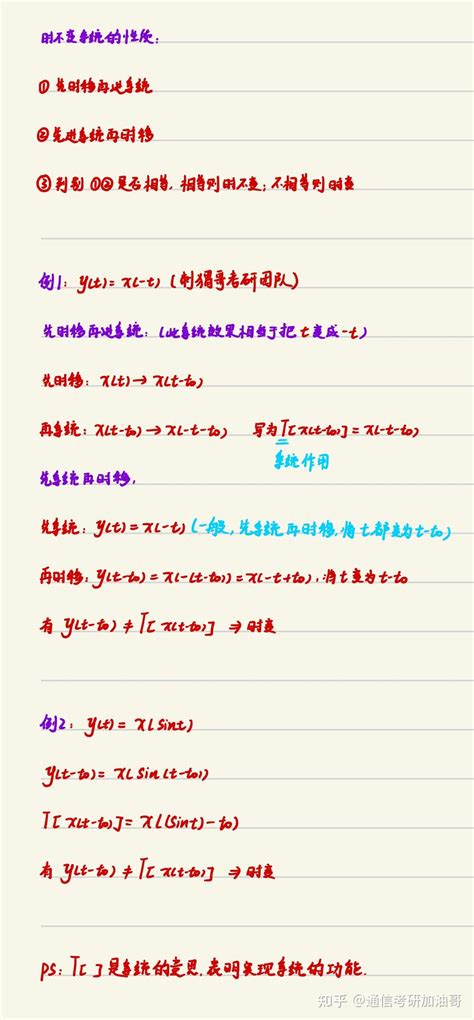 时不变系统的性质:
① 先时移再进系统
② 先进系统再时移
③ 判别①②是否相等, 相等则时不变; 不相等则时变
例1: y(t) = x(-t) (刺猬哥考研团队)
先时移再进系统: (此系统效果相当于把t变成-t)
先时移: x(t) → x(t-t₀)
再系统: x(t-t₀) → x(-t-t₀) 写为 T[x(t-t₀)] = x(-t-t₀)
系统作用
先系统再时移,
先系统: y(t) = x(-t) (一般, 先系统再时移, 将t都变为t-t₀)
再时移: y(t-t₀) = x(-(t-t₀)) = x(-t+t₀), 将t变为t-t₀
有 y(t-t₀) ≠ T[x(t-t₀)] ⇒ 时变
例2: y(t) = x(sint)
y(t-t₀) = x(sin(t-t₀))
T[x(t-t₀)] = x((sint)-t₀)
有 y(t-t₀) ≠ T[x(t-t₀)] ⇒ 时变
ps: T[ ] 是系统的意思, 表明实现系统的功能.
知乎 @通信考研加油哥